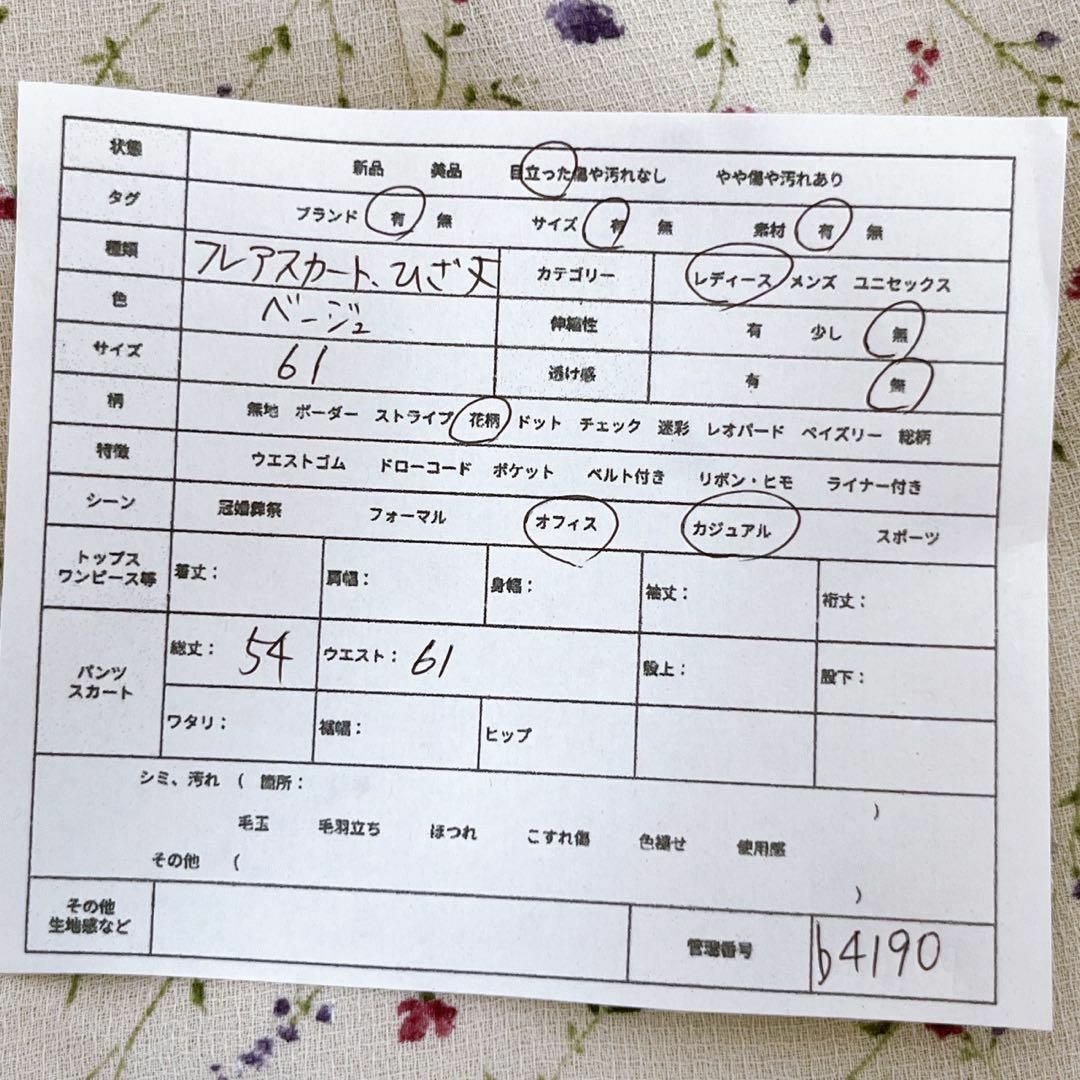 状態 新品 美品 目立った傷や汚れなし やや傷や汚れあり
タグ ブランド 有 無 サイズ 有 無 素材 有 無
種類 フレアスカート、ひざ丈 カテゴリー レディース メンズ ユニセックス
色 ベージュ 伸縮性 有 少し 無
サイズ 61 透け感 有 無
柄 無地 ボーダー ストライプ 花柄 ドット チェック 迷彩 レオパード ペイズリー 総柄
特徴 ウエストゴム ドローコード ポケット ベルト付き リボン・ヒモ ライナー付き
シーン 冠婚葬祭 フォーマル オフィス カジュアル スポーツ
トップス
ワンピース等 着丈: 肩幅: 身幅: 袖丈: 裄丈:
パンツ
スカート 総丈: 54 ウエスト: 61 股上: 股下:
ワタリ: 裾幅: ヒップ
シミ、汚れ ( 箇所: )
毛玉 毛羽立ち ほつれ こすれ傷 色褪せ 使用感
その他 ( )
その他
生地感など 管理番号 b4190